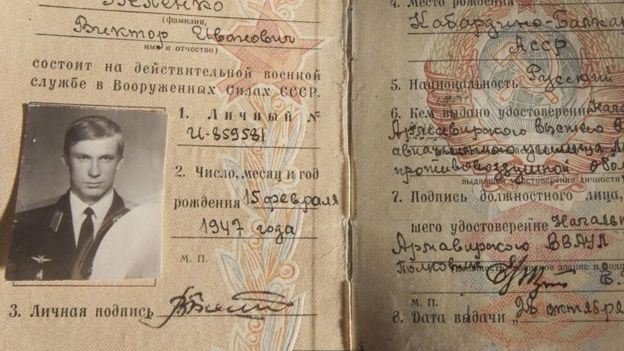 (фамилия,
Виктор Иванович
имя и отчество)
состоит на действительной военной
службе в Вооруженных Силах СССР.
1. Личный №
И-859531
2. Число, месяц и год
рождения 15 февраля
1947 года
М. П.
3. Личная подпись
4. Место рождения
Кабардино-Балкар
АССР
5. Национальность Русский
6. Кем выдано удостоверение Нача
Армавирского высшего в
авиационного училища
противовоздушной обо
7. Подпись должностного лица,
шего удостоверение Началь
Армавирского ВВАУЛ
полковник
М. П.
8. Дата выдачи „28 октября